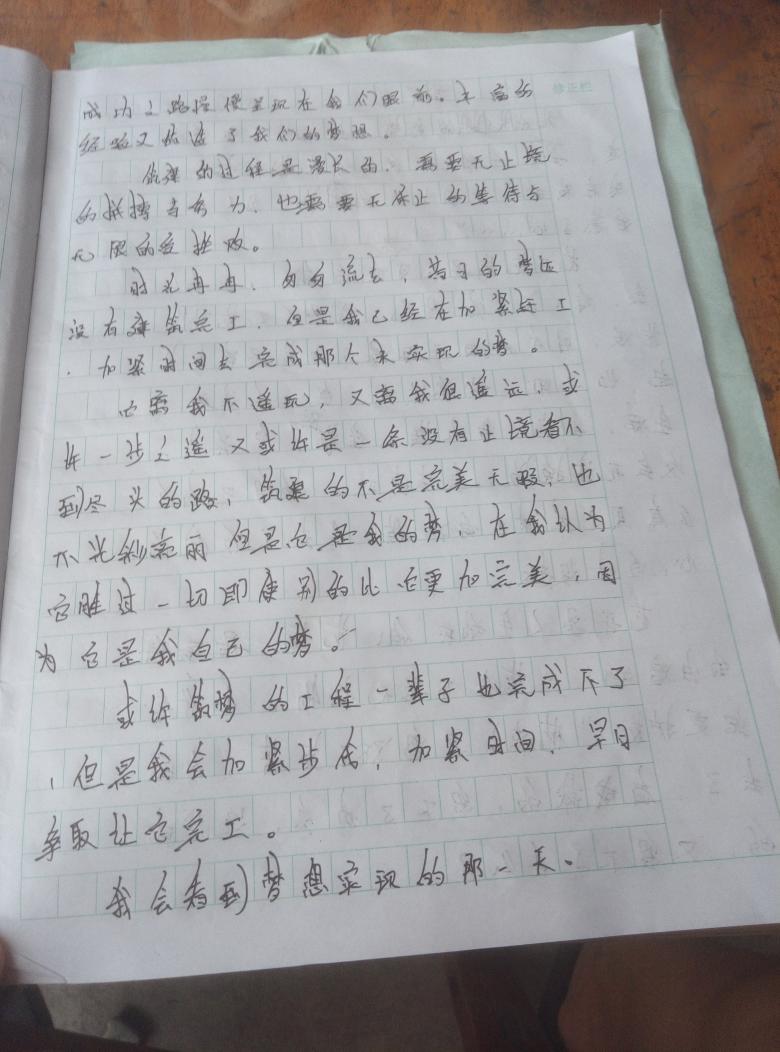 成功之路慢慢呈现在我们眼前。丰富的 修正栏
经验又加速了我们的梦想。
筑梦的过程是漫长的,需要无止境
的拼搏与努力,也需要无休止的等待与
无限的
时光冉冉,匆匆流去,昔日的梦还
没有建筑完工,但是我已经在加紧赶工
,加紧时间去完成那个未实现的梦。
它离我不遥远,又离我很遥远,或
许一步之遥又或许是一条没有止境看不
到尽头的路,筑梦的不是完美无暇,也
不光彩亮丽但是它是我的梦,在我认为
它胜过一切即使别的比它更加完美,因
为它是我自己的梦。
或许筑梦的工程一辈子也完成不了
,但是我会加紧步伐,加紧时间,早日
争取让它完工。
我会看到梦想实现的那一天。